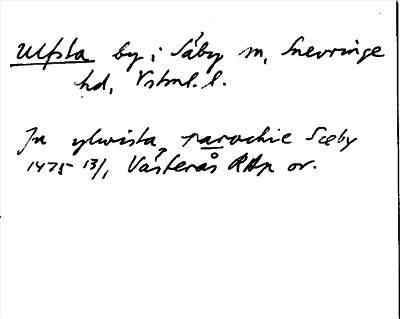 Ulfsta by i Säby sn, Snevringe
hd, Vstml. l.
In ylwista, parochie Sæby
1475 13/1, Västerås RAp or.